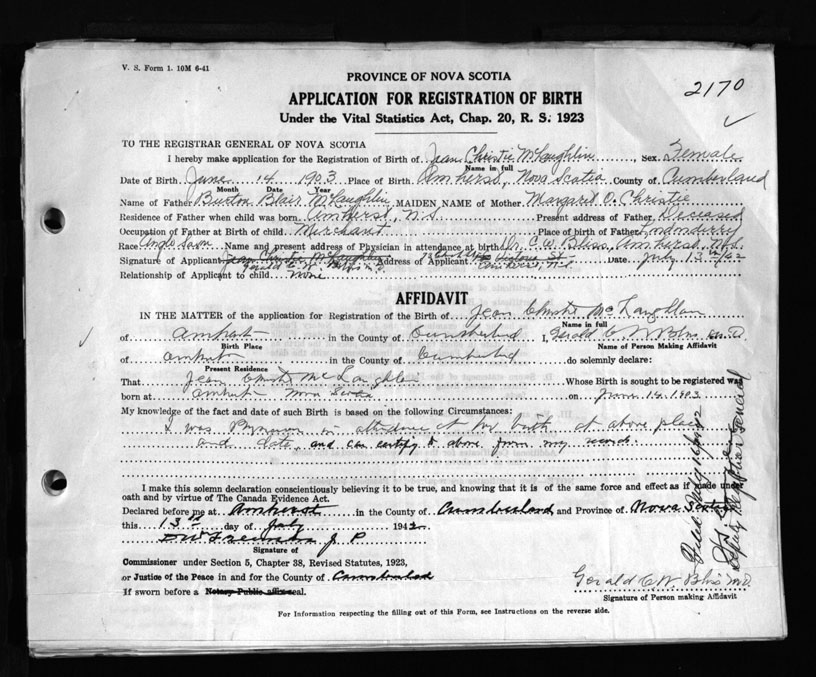 V. S. Form 1. 10M 6-41
2170
PROVINCE OF NOVA SCOTIA
APPLICATION FOR REGISTRATION OF BIRTH
Under the Vital Statistics Act, Chap. 20, R. S. 1923
TO THE REGISTRAR GENERAL OF NOVA SCOTIA
I hereby make application for the Registration of Birth of Jean Christie McLaughlin, Sex Female
Name in full
Date of Birth June 14 1903 Place of Birth Amherst, Nova Scotia County of Cumberland
Month Date Year
Name of Father Burton Blair McLaughlin MAIDEN NAME of Mother Margaret O. Christie
Residence of Father when child was born Amherst, N.S. Present address of Father Deceased
Occupation of Father at Birth of child Merchant Place of birth of Father Londonderry
Race Anglo Saxon Name and present address of Physician in attendance at birth Dr. C. W. Bliss, Amherst, N.S.
Signature of Applicant Jean Christie McLaughlin Address of Applicant Victoria St. Date July 13th/42
Gerald C. W. Bliss M.D. Amherst, N.S.
Relationship of Applicant to child None
AFFIDAVIT
IN THE MATTER of the application for Registration of the Birth of Jean Christie McLaughlin
Name in full
of Amherst in the County of Cumberland I, Gerald C W Bliss M.D.
Birth Place Name of Person Making Affidavit
of Amherst in the County of Cumberland do solemnly declare:
Present Residence
That Jean Christie McLaughlin Whose Birth is sought to be registered was
born at Amherst Nova Scotia on June 14 1903
My knowledge of the fact and date of such Birth is based on the following Circumstances:
I was Physician in attendance at her birth at above place
and date, and can certify to above from my records.
I make this solemn declaration conscientiously believing it to be true, and knowing that it is of the same force and effect as if made under
oath and by virtue of The Canada Evidence Act.
Declared before me at Amherst in the County of Cumberland and Province of Nova Scotia
this 13th day of July 1942
Freeman J P
Signature of
Commissioner under Section 5, Chapter 38, Revised Statutes, 1923,
or Justice of the Peace in and for the County of Cumberland
If sworn before a Notary Public affix seal.
Gerald C W Bliss M.D.
Signature of Person making Affidavit
For Information respecting the filling out of this Form, see Instructions on the reverse side.
Deputy Registrar General